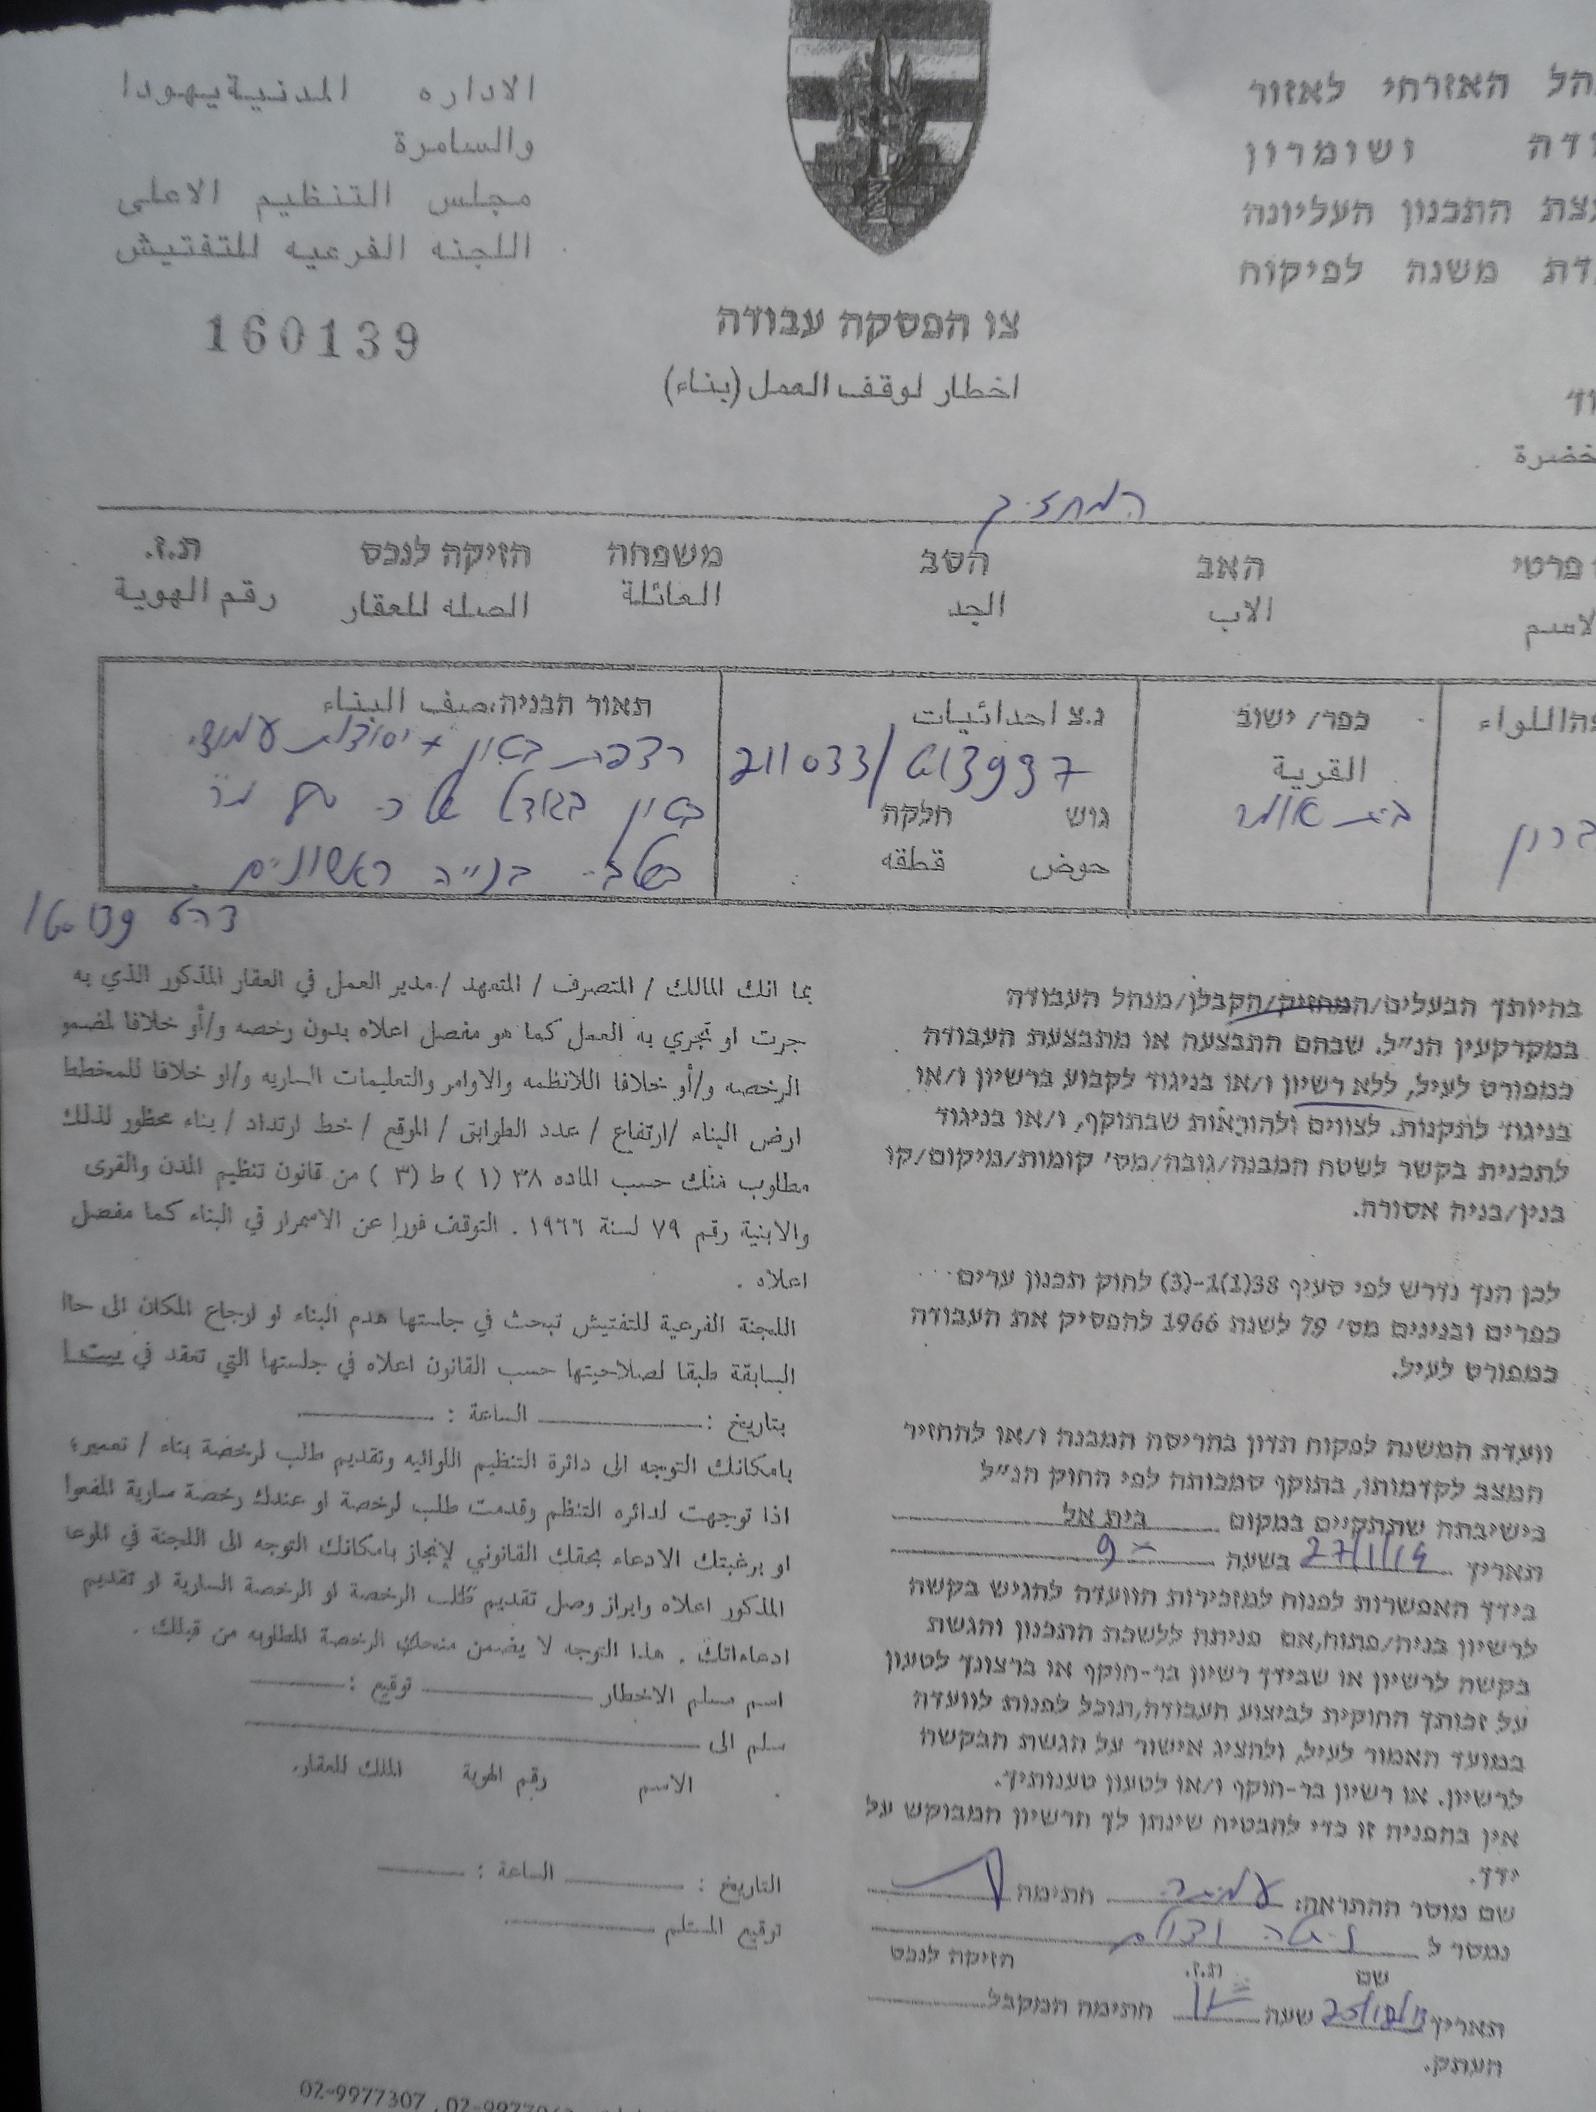 האזרחי לאזור
ושומרון
התכנון העליונה
משנה לפיקוח
الاداره المدنية يهودا
والسامرة
مجلس التنظيم الاعلى
اللجنه الفرعيه للتفتيش
160139
צו הפסקה עבודה
اخطار لوقف العمل (بناء)
המחזיק
פרטי האב הסב משפחה חזיקה לנכס ת.ז.
الاسم الاب الجد العائلة الصله للعقار رقم الهوية
اللواء
כפר/ ישוב
القرية
בית אומר
נ.צ احداثيات
211033/613997
גוש חלקה
حوض قطقه
תאור הבניה، صف البناء
רצפת בטון + יסודות עמודי
בטון בגודל של כ-
בשלב- בנייה ראשונים
160139
בהיותך הבעלים/המחזיק/הקבלן/מנהל העבודה
במקרקעין הנ״ל. שבהם התבצעה או מתבצעת העבודה
כמפורט לעיל, ללא רשיון ו/או בניגוד לקבוע ברשיון ו/או
בניגוד לתקנות. לצווים ולהוראות שבתוקף, ו/או בניגוד
לתכנית בקשר לשטח המבנה/גובה/מס׳ קומות/מיקום/קו
בנין/בניה אסורה.
לכן הנך נדרש לפי סעיף 38(1)1-(3) לחוק תכנון ערים
כפרים ובנינים מס׳ 79 לשנת 1966 להפסיק את העבודה
כמפורט לעיל.
וועדת המשנה לפקוח תדון בהריסה המבנה ו/או להחזיר
המצב לקדמותו, בתוקף סמכותה לפי החוק הנ״ל
בישיבתה שתתקיים במקום בית אל
תאריך 27/1/14 בשעה 9
בידך האפשרות לפנות למזכירות הוועדה להגיש בקשה
לרשיון בניה/פתוח, אם פניתה ללשכת התכנון והגשת
בקשה לרשיון או שבידך רשיון בר-תוקף או ברצונך לטעון
על זכותך החוקית לביצוע העבודה, תוכל לפנות לוועדה
במועד האמור לעיל, ולהציג אישור על הגשת הבקשה
לרשיון. או רשיון בר-תוקף ו/או לטעון טענותיך.
אין בהפניה זו כדי להבטיח שינתן לך הרשיון המבוקש על
ידך.
שם מוסר ההתראה: חתימה
נמסר ל
שם ת.ז. חזיקה לנכס
תאריך שעה חתימה המקבל
העתק.
بما انك المالك / المتصرف / المتعهد / مدير العمل في العقار المذكور الذي به
جرت او تجري به العمل كما هو مفصل اعلاه بدون رخصه و/أو خلافا لمضمو
الرخصه و/أو خلافا اللانظمه والاوامر والتعليمات الساريه و/او خلافا للمخطط
ارض البناء /ارتفاع / عدد الطوابق / الموقع / خط ارتداد / بناء محظور لذلك
مطلوب منك حسب الماده ٣٨ (١) ط (٣) من قانون تنظيم المدن والقرى
والابنية رقم ٧٩ لسنة ١٩٦٦ . التوقف فورا عن الاسمرار في البناء كما مفصل
اعلاه .
اللجنة الفرعية للتفتيش تبحث في جلستها هدم البناء او ارجاع المكان الى حاا
السابقة طبقا لصلاحيتها حسب القانون اعلاه في جلستها التي تعقد في
بتاريخ : الساعة :
بامكانك التوجه الى دائرة التنظيم اللوائيه وتقديم طلب لرخصة بناء / تعمير؛
اذا توجهت لدائره التنظم وقدمت طلب لرخصة او عندك رخصة سارية المفعوا
او برغبتك الادعاء بحقك القانوني لإنجاز بامكانك التوجه الى اللجنة في الموعا
المذكور اعلاه وابراز وصل تقديم طلب الرخصة او الرخصة السارية او تقديم
ادعاءاتك . هذا التوجه لا يضمن منحك الرخصة المطلوبه من قبلك .
اسم مسلم الاخطار توقيع :
سلم الى
الاسم رقم الهوية المالك للعقار.
التاريخ : الساعة :
توقيع المستلم
02-9977307